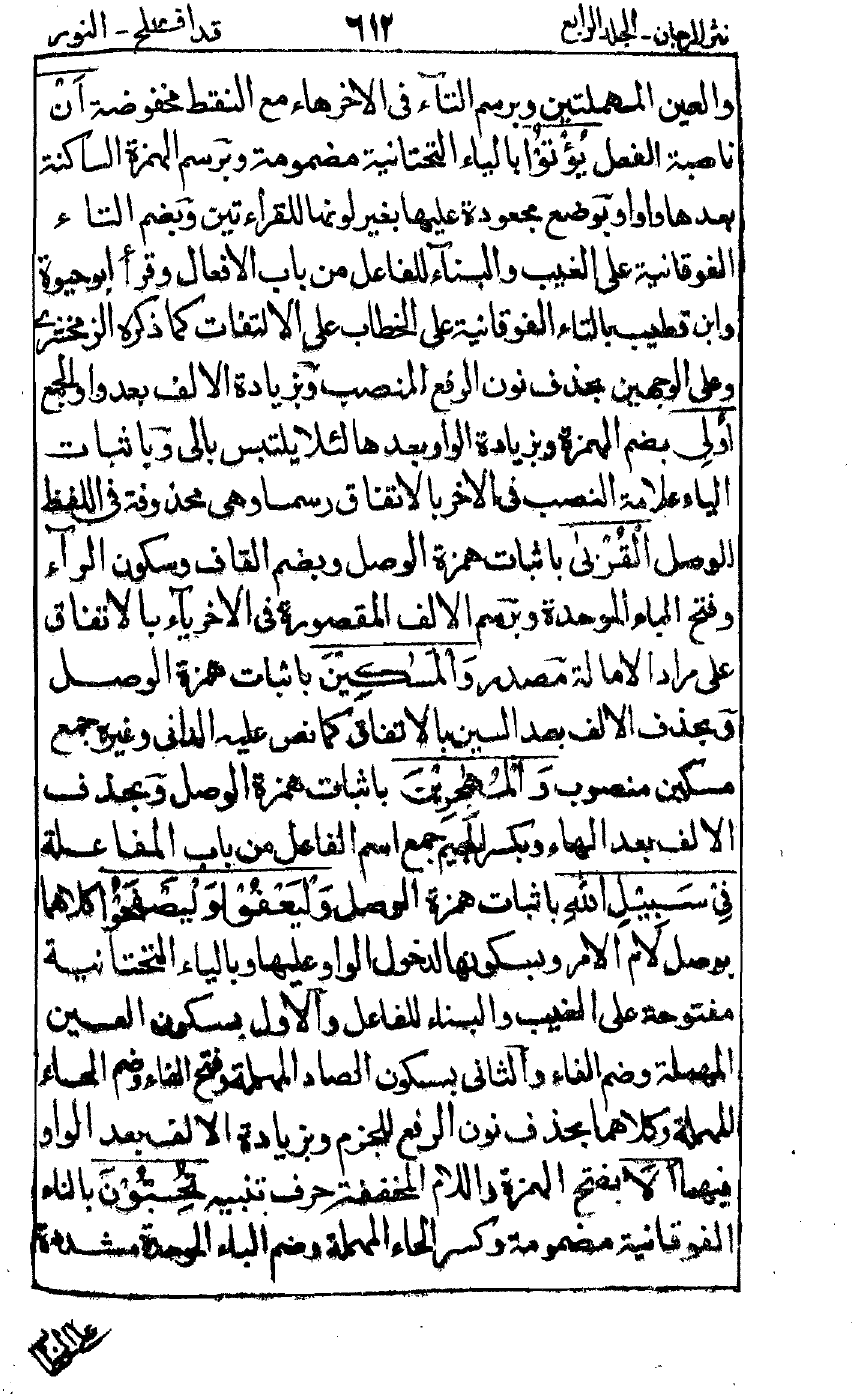 نثر المرجان - الجلد الرابع ٦١٢ قد افلح - النور
والعين المهملتين وبرسم التآء فى الاخرهاء مع النقط مخفوضة اَنْ
ناصبة الفعل يُؤْتُوْا بالياء التحتانية مضمومة وبرسم الهمزة الساكنة
بعدها واوا وبوضع مجعودة عليها بغير لونها للقراءتين وبضم التاء
الفوقانية على الغيب والبنآء للفاعل من باب الافعال وقرأ ابوحيوة
وابن قطيب بالتاء الفوقانية على الخطاب على الالتفات كما ذكره الزمخشرى
وعلى الوجهين بحذف نون الرفع المنصب وبزيادة الالف بعد واو الجمع
اُولِى بضم الهمزة وبزيادة الواو بعدها لئلا يلتبس بالى وباثبات
الياء علامة النصب فى الاخر بالاتفاق رسما وهى محذوفة فى اللفظ
للوصل الْقُرْبٰى باثبات همزة الوصل وبضم القاف وسكون الرآء
وفتح الباء الموحدة وبرسم الالف المقصورة فى الاخرياء بالاتفاق
على مراد الامالة مصدر وَالْمَسٰكِيْنَ باثبات همزة الوصل
وبحذف الالف بعد السين بالاتفاق كما نص عليه الدانى وغيره جمع
مسكين منصوب وَالْمُهٰجِرِيْنَ باثبات همزة الوصل وبحذف
الالف بعد الهاء وبكسر الجيم جمع اسم الفاعل من باب المفاعلة
فِىْ سَبِيْلِ اللّٰهِ باثبات همزة الوصل وَلْيَعْفُوْا وَلْيَصْفَحُوْا كلاهما
بوصل لام الامر وبسكونها لدخول الواو عليها وبالياء التحتانية
مفتوحة على الغيب والبناء للفاعل والاول بسكون العين
المهملة وضم الفاء والثانى بسكون الصاد المهملة وفتح الفاء وضم الحاء
المهملة وكلاهما بحذف نون الرفع للجزم وبزيادة الالف بعد الواو
فيهما اَلَا بفتح الهمزة واللام المخففة حرف تنبيه تُحِبُّوْنَ بالتاء
الفوقانية مضمومة وكسر الحاء المهملة وضم الباء الموحدة مشددة